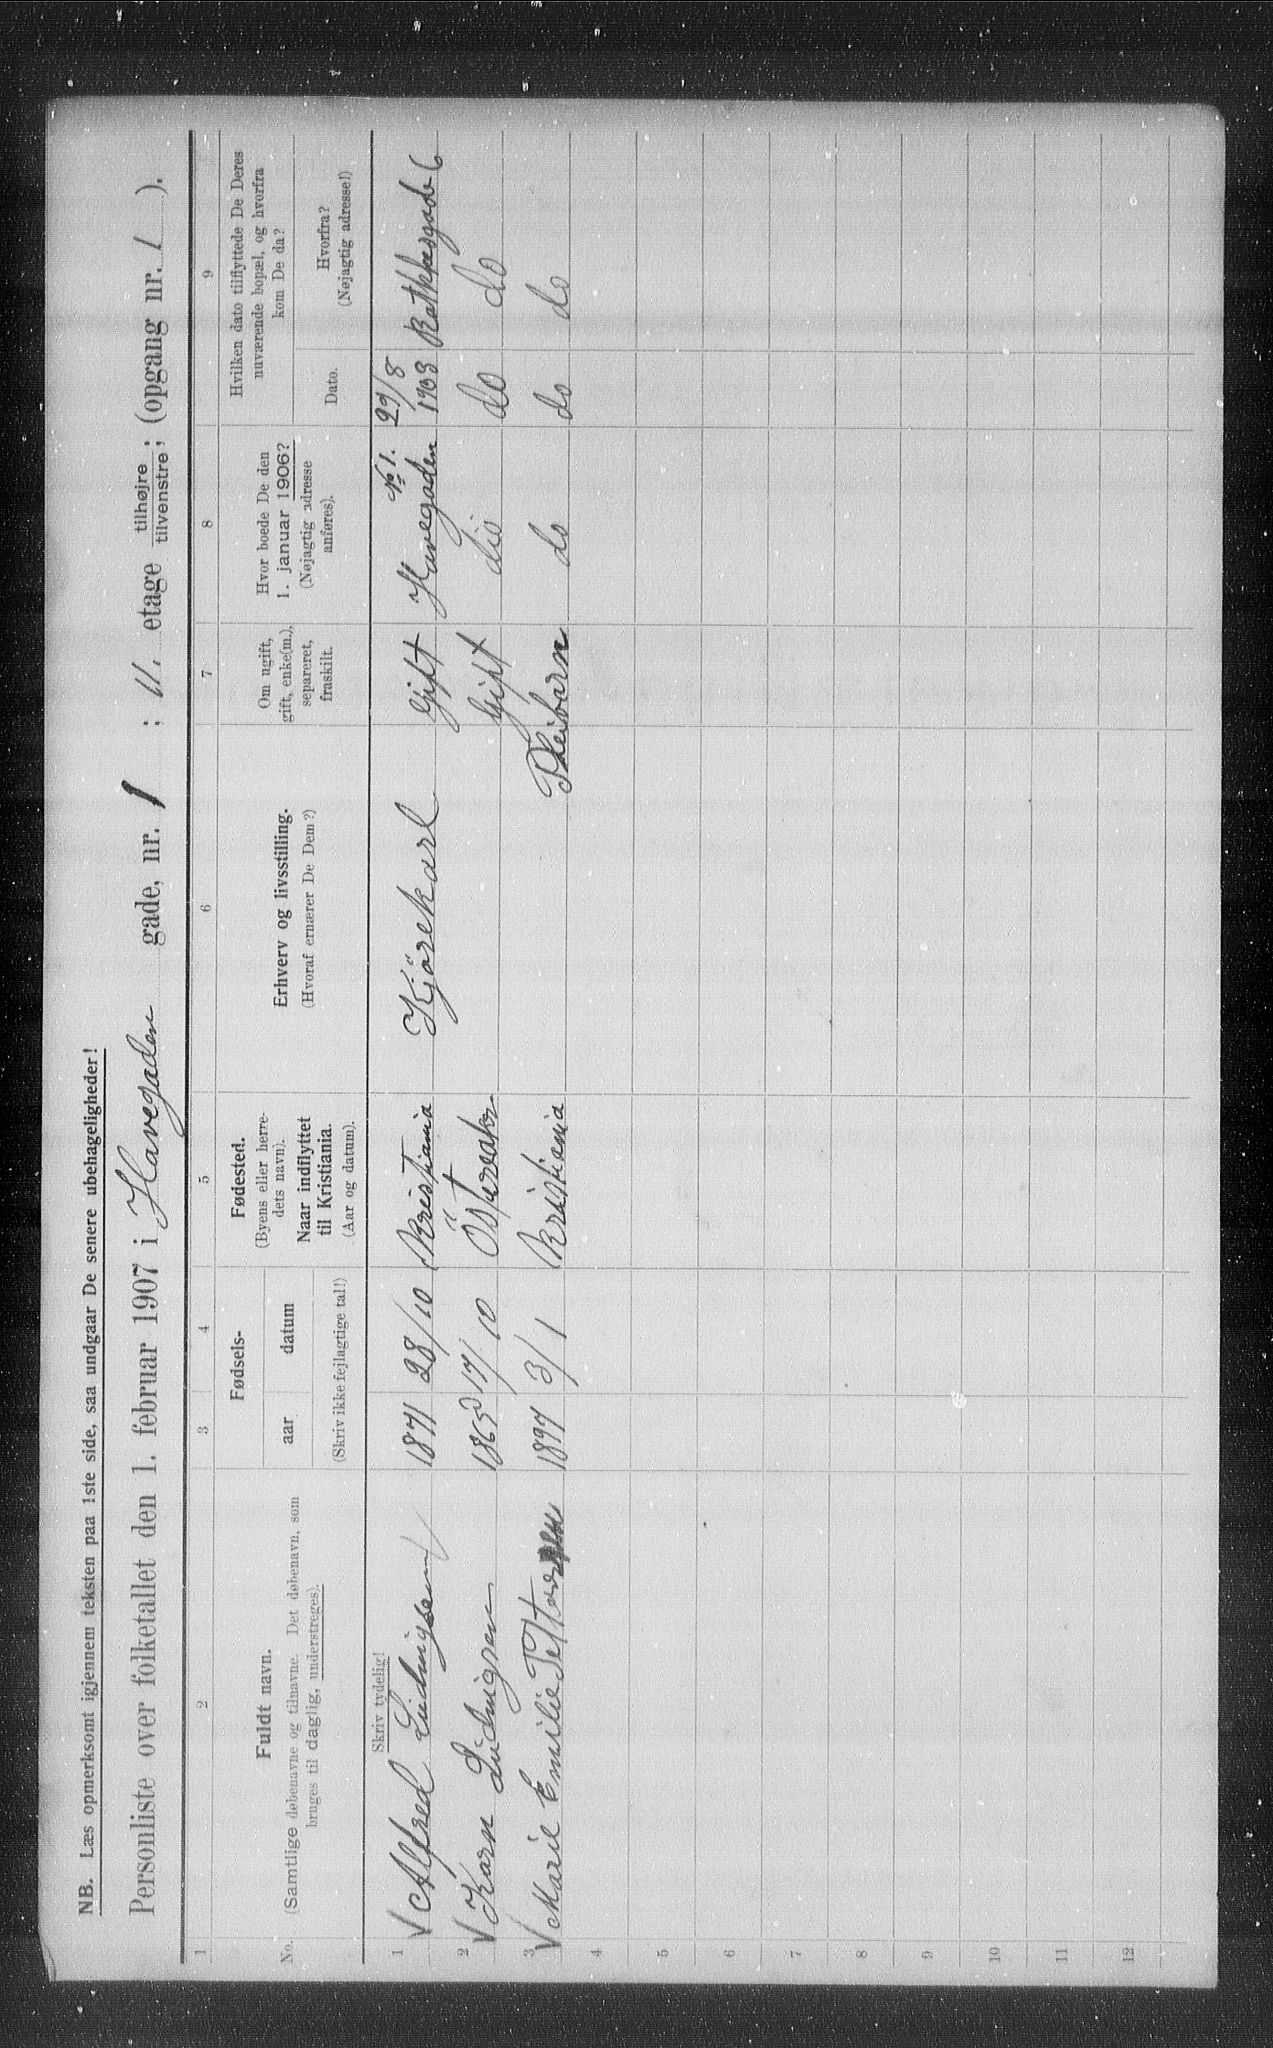 NB. Læs opmerksomt igjennem teksten paa 1ste side, saa undgaar De senere ubehageligheder!
Personliste over folketallet den 1. februar 1907 i Havegaden gade, nr. 1 ; II. etage tilhøjre tilvenstre; (opgang nr. 1 ).
1 2 3 4 5 6 7 8 9
No.
Fuldt navn.
(Samtlige døbenavne og tilnavne. Det døbenavn, som
bruges til daglig, understreges).
Fødsels-
aar datum
(Skriv ikke fejlagtige tal!)
Fødested.
(Byens eller herre-
dets navn).
Naar indflyttet
til Kristiania.
(Aar og datum).
Erhverv og livsstilling.
(Hvoraf ernærer De Dem?)
Om ugift,
gift, enke(m.),
separeret,
fraskilt.
Hvor boede De den
1. januar 1906?
(Nøjagtig adresse
anføres).
Hvilken dato tilflyttede De Deres
nuværende bopæl, og hvorfra
kom De da?
Dato.
Hvorfra?
(Nøjagtig adresse!)
Skriv tydelig!
1 Alfred Ludvigsen 1871 28/10 Kristiania Kjörekarl Gift Havegaden No 1. 29/8 1903 Rathkesgade 6
2 Karn Ludvigsen 1865 17/10 Gift dio do do
3 Marie Emilie 1897 3/1 Kristiania Pleibarn do do do
4
5
6
7
8
9
10
11
12